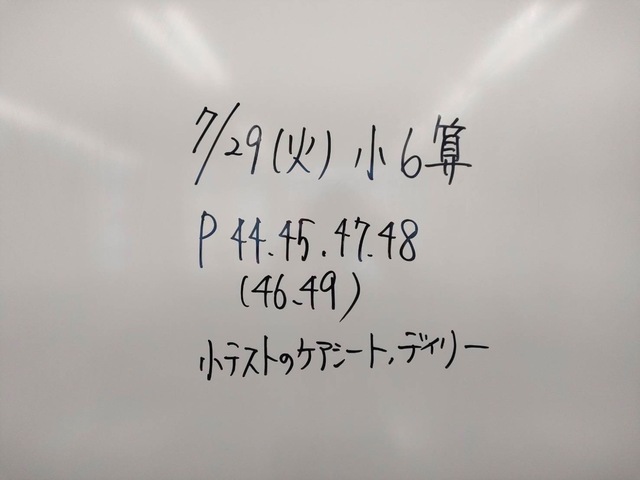 7/29(火) 小6算
P 44.45.47.48
(46.49)
小テストのケアシート、デイリー